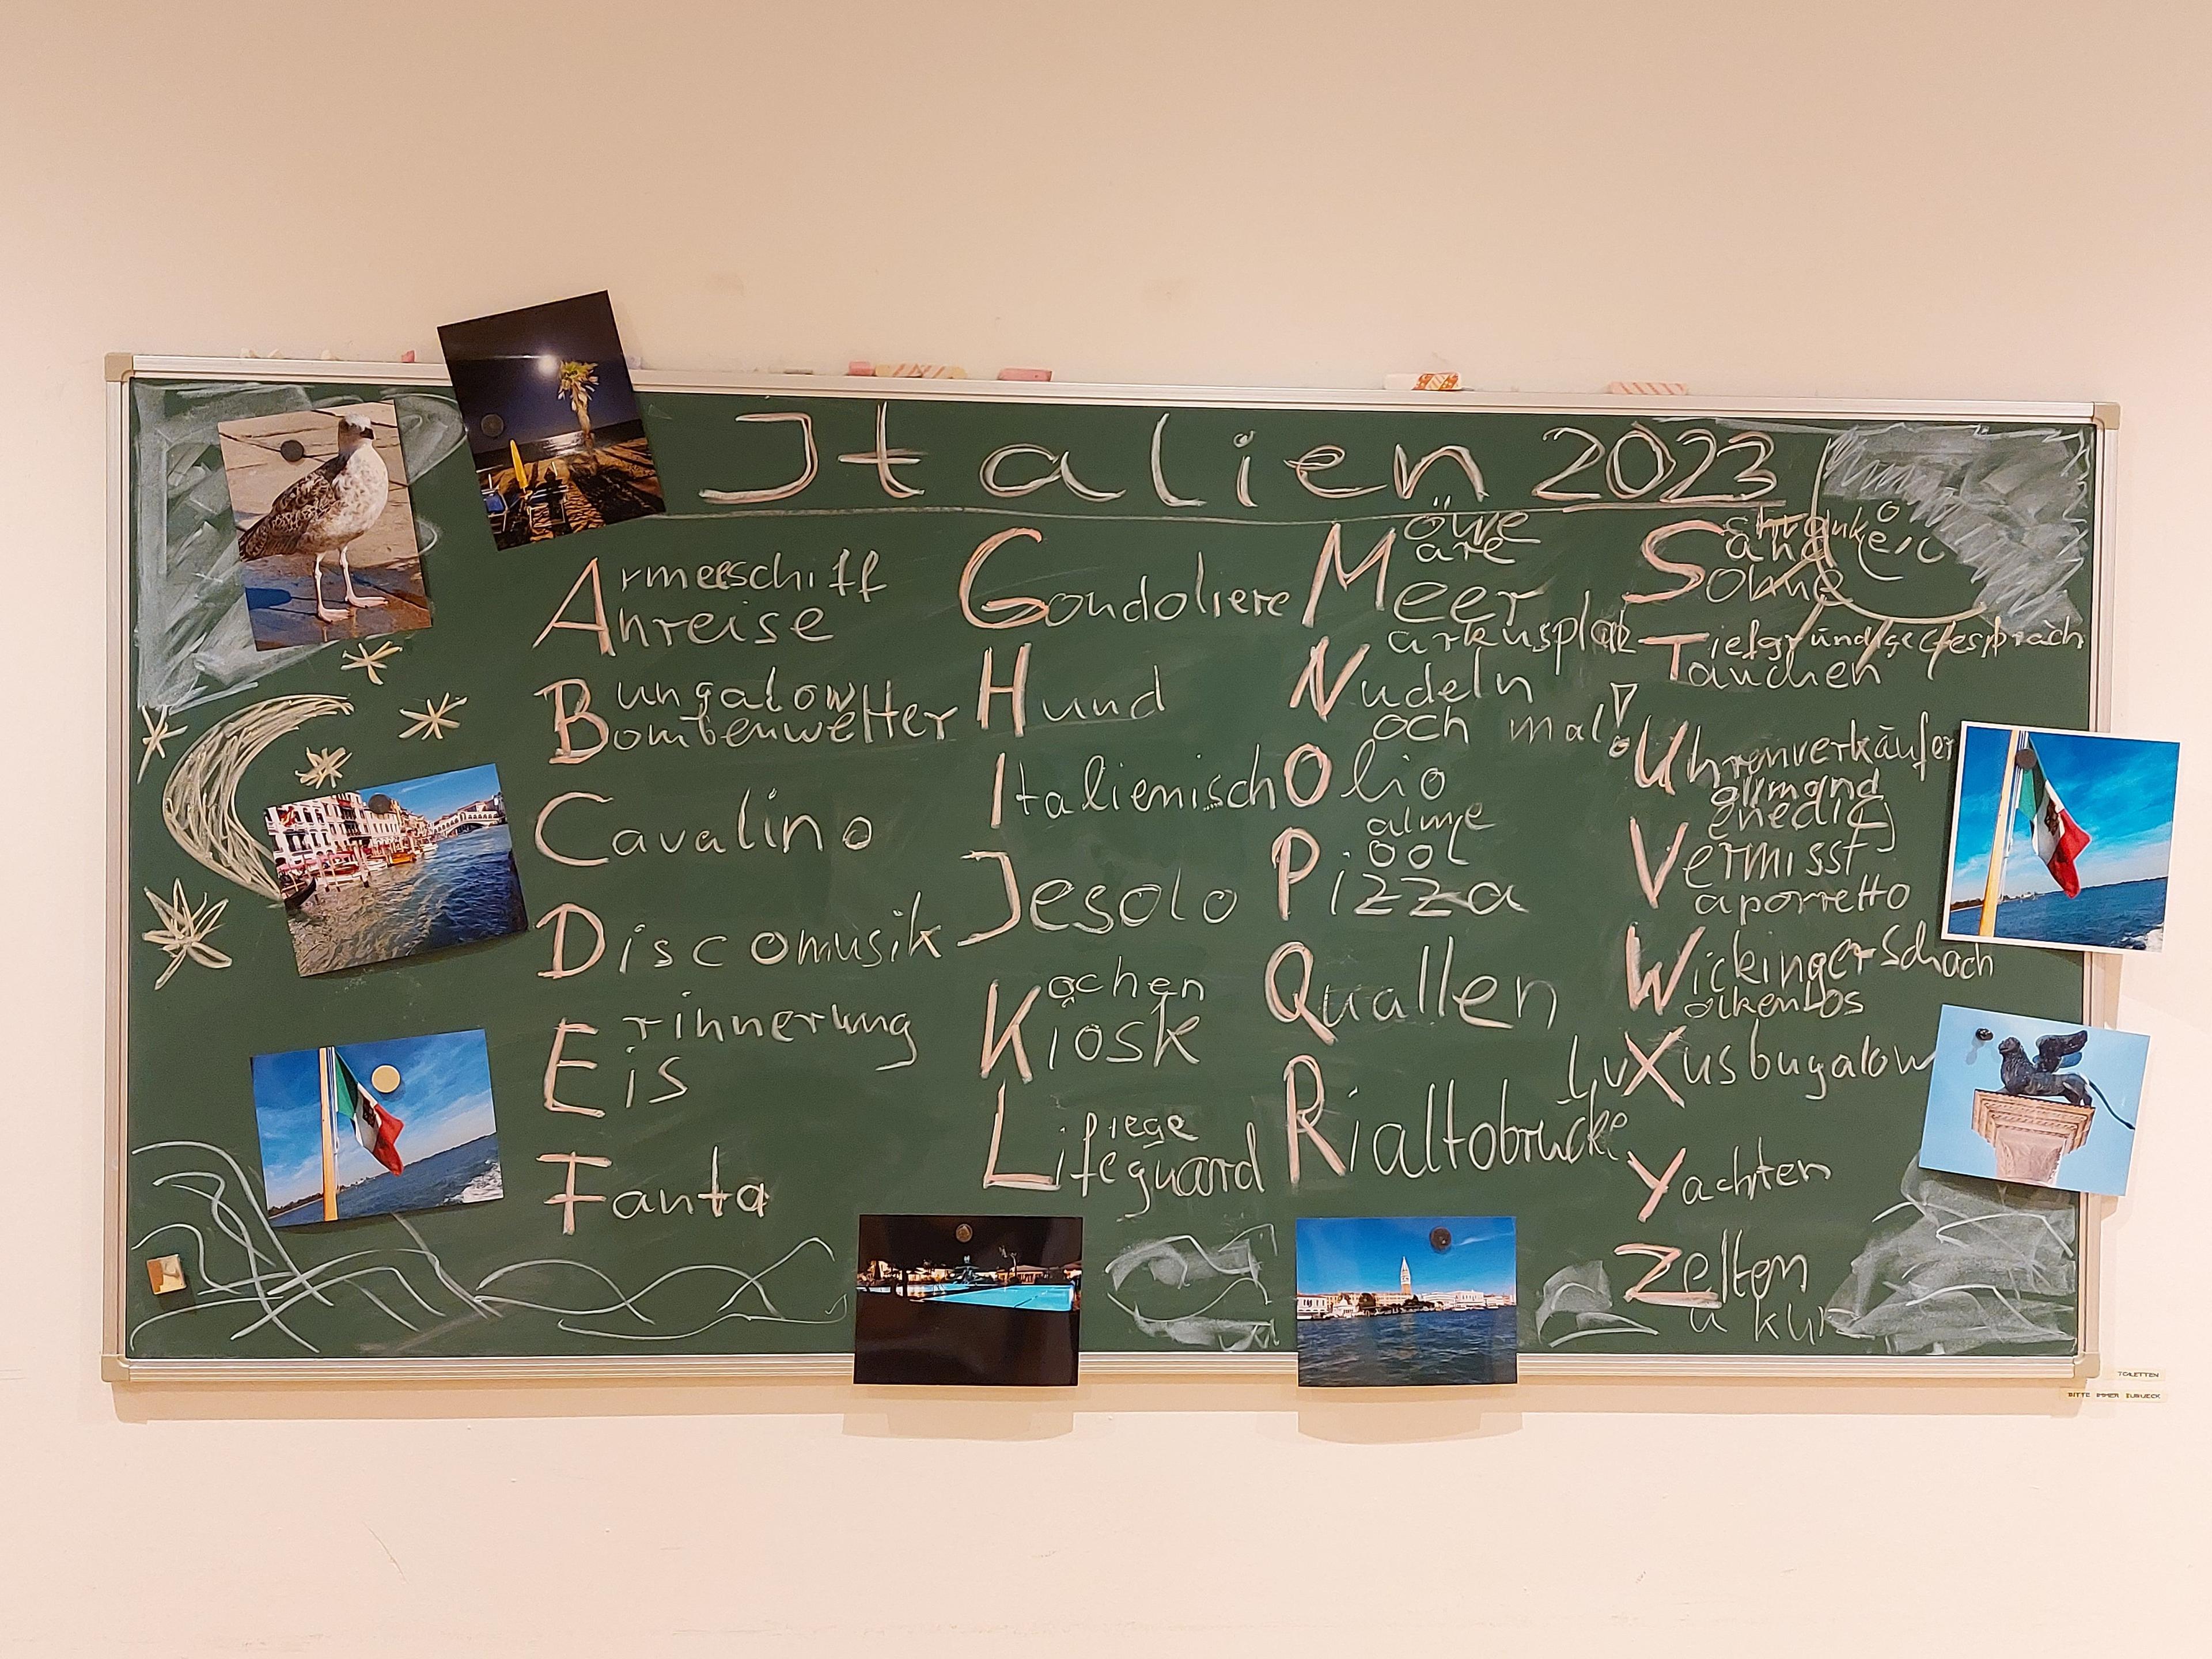 Italien 2023
Armeeschiff
Anreise
Bungalow
Bombenwetter
Cavalino
Discomusik
Erinnerung
Eis
Fanta
Gondoliere
Hund
Italienisch
Jesolo
Kochen
Kiosk
Liege
Lifeguard
Möwe
are
Meer
arkusplatz
Nudeln
och mal!
Olio
alme
ool
Pizza
Quallen
Rialtobrücke
Schranke
and
Sonne
Tiefgründige Gespräch
Tauchen
Uhrenverkäufer
enedig
Vermisst
aporretto
Wickingerschach
olkenlos
Luxusbugalow
Yachten
Zelten
TOILETTEN
BITTE IMMER ZURUECK